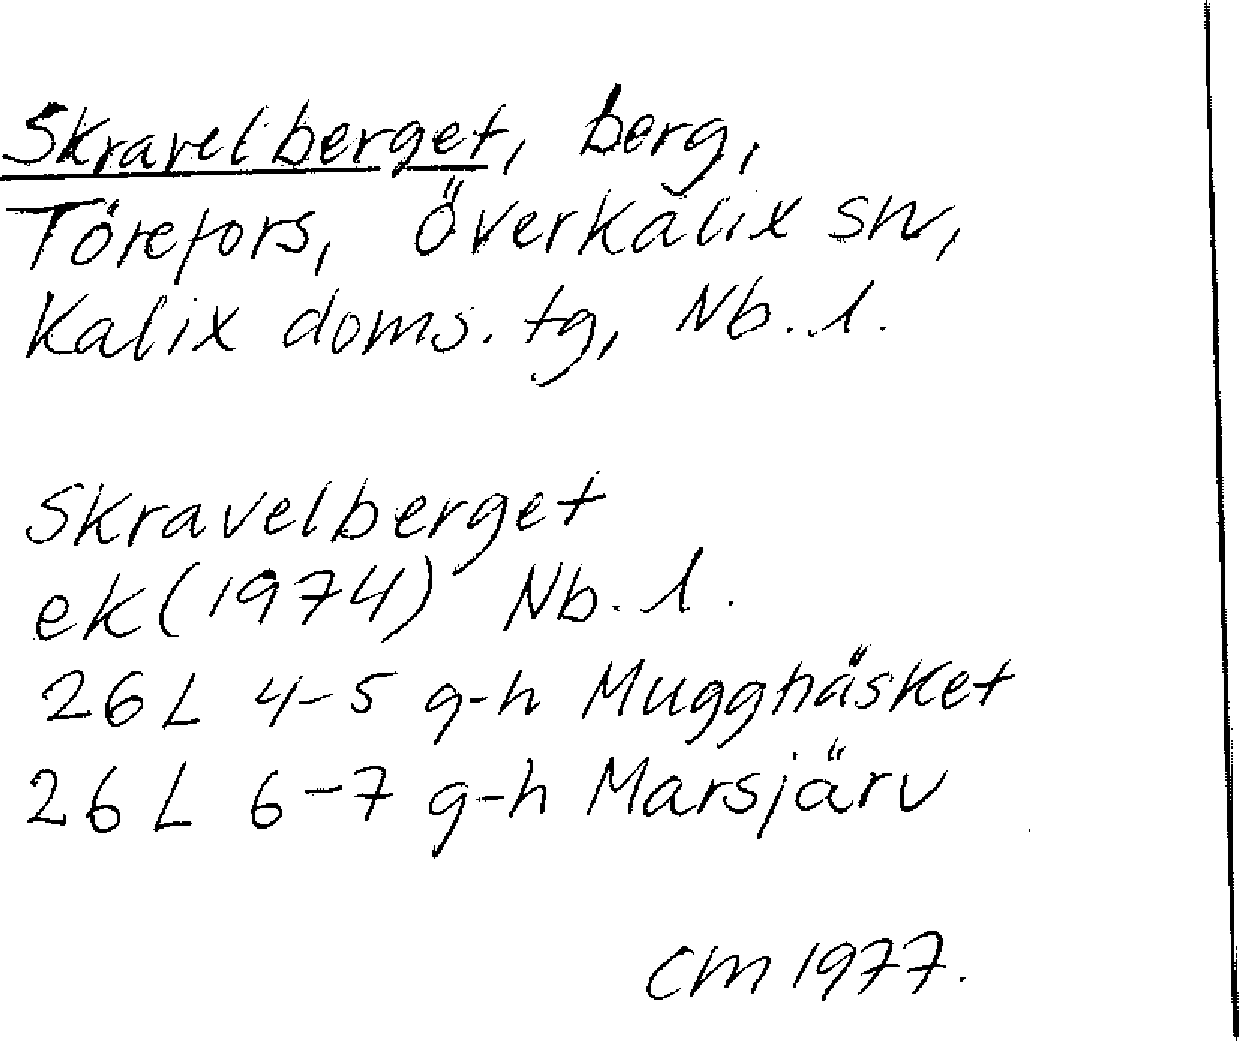 Skravelberget, berg,
Törefors, Överkalix sn,
Kalix doms. tg, Nb. l.
Skravelberget
ek (1974) Nb. l.
26 L 4-5 g-h Mugghåsket
26 L 6-7 g-h Marsjärv
CM 1977.